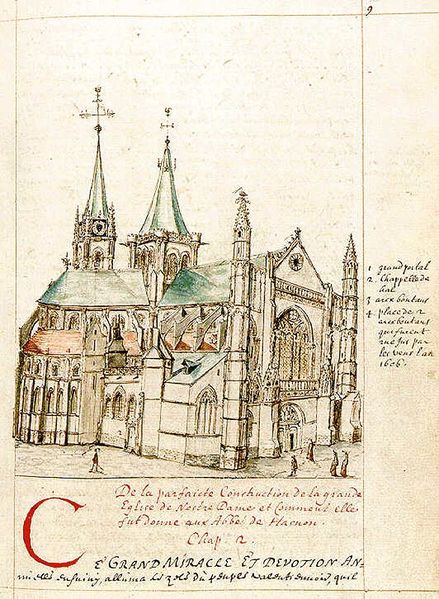 9
1 grand portal
2 Chappelle de
hal
3 arcx boutans
4 place de 2
arcx boutans
qui furent
rue jus par
les vent l'an
1606.
De la parfaicte Construction de la grande
Eglise de Nostre Dame et Comment elle
fut donne aux Abbés de Hasnon.
Chap. 2.
CE GRAND MIRACLE ET DEVOTION AN-
nuelle ensuivy, alluma les zels du peuple valentiennois, quil